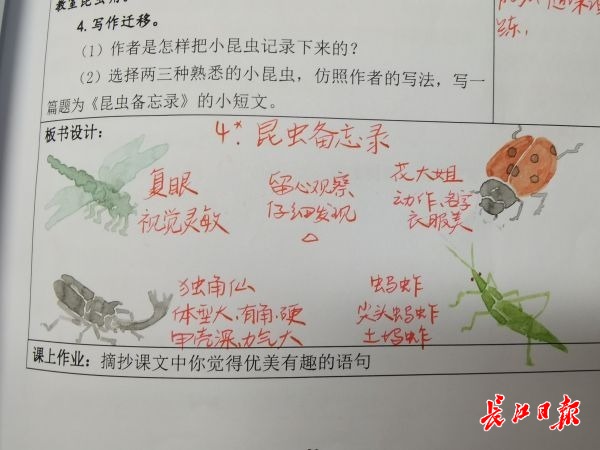 教室昆虫角。
4.写作迁移。
（1）作者是怎样把小昆虫记录下来的？
（2）选择两三种熟悉的小昆虫，仿照作者的写法，写一
篇题为《昆虫备忘录》的小短文。
练，
板书设计：
4*.昆虫备忘录
复眼
视觉灵敏
留心观察
仔细发现
花大姐
动作、名字
衣服美
独角仙
体型大、有角、硬
甲壳深,力气大
蚂蚱
尖头蚂蚱
土蚂蚱
课上作业：摘抄课文中你觉得优美有趣的语句
长江日报